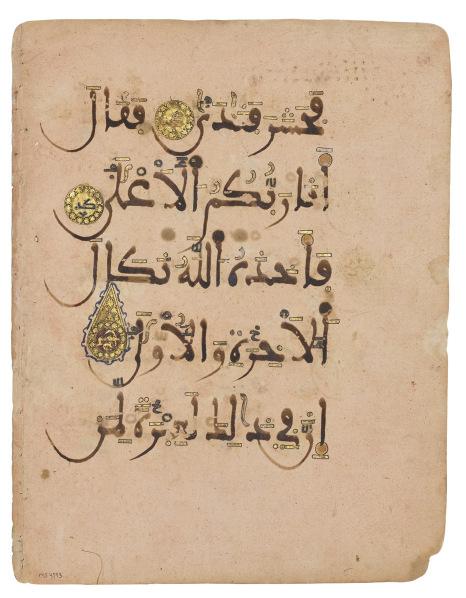 فَحَشَرَ فَنَادَىٰ فَقَالَ
أَنَا رَبُّكُمُ الْأَعْلَىٰ
فَأَخَذَهُ اللَّهُ نَكَالَ
الْآخِرَةِ وَالْأُولَىٰ
إِنَّ فِي ذَٰلِكَ لَعِبْرَةً لِّمَن